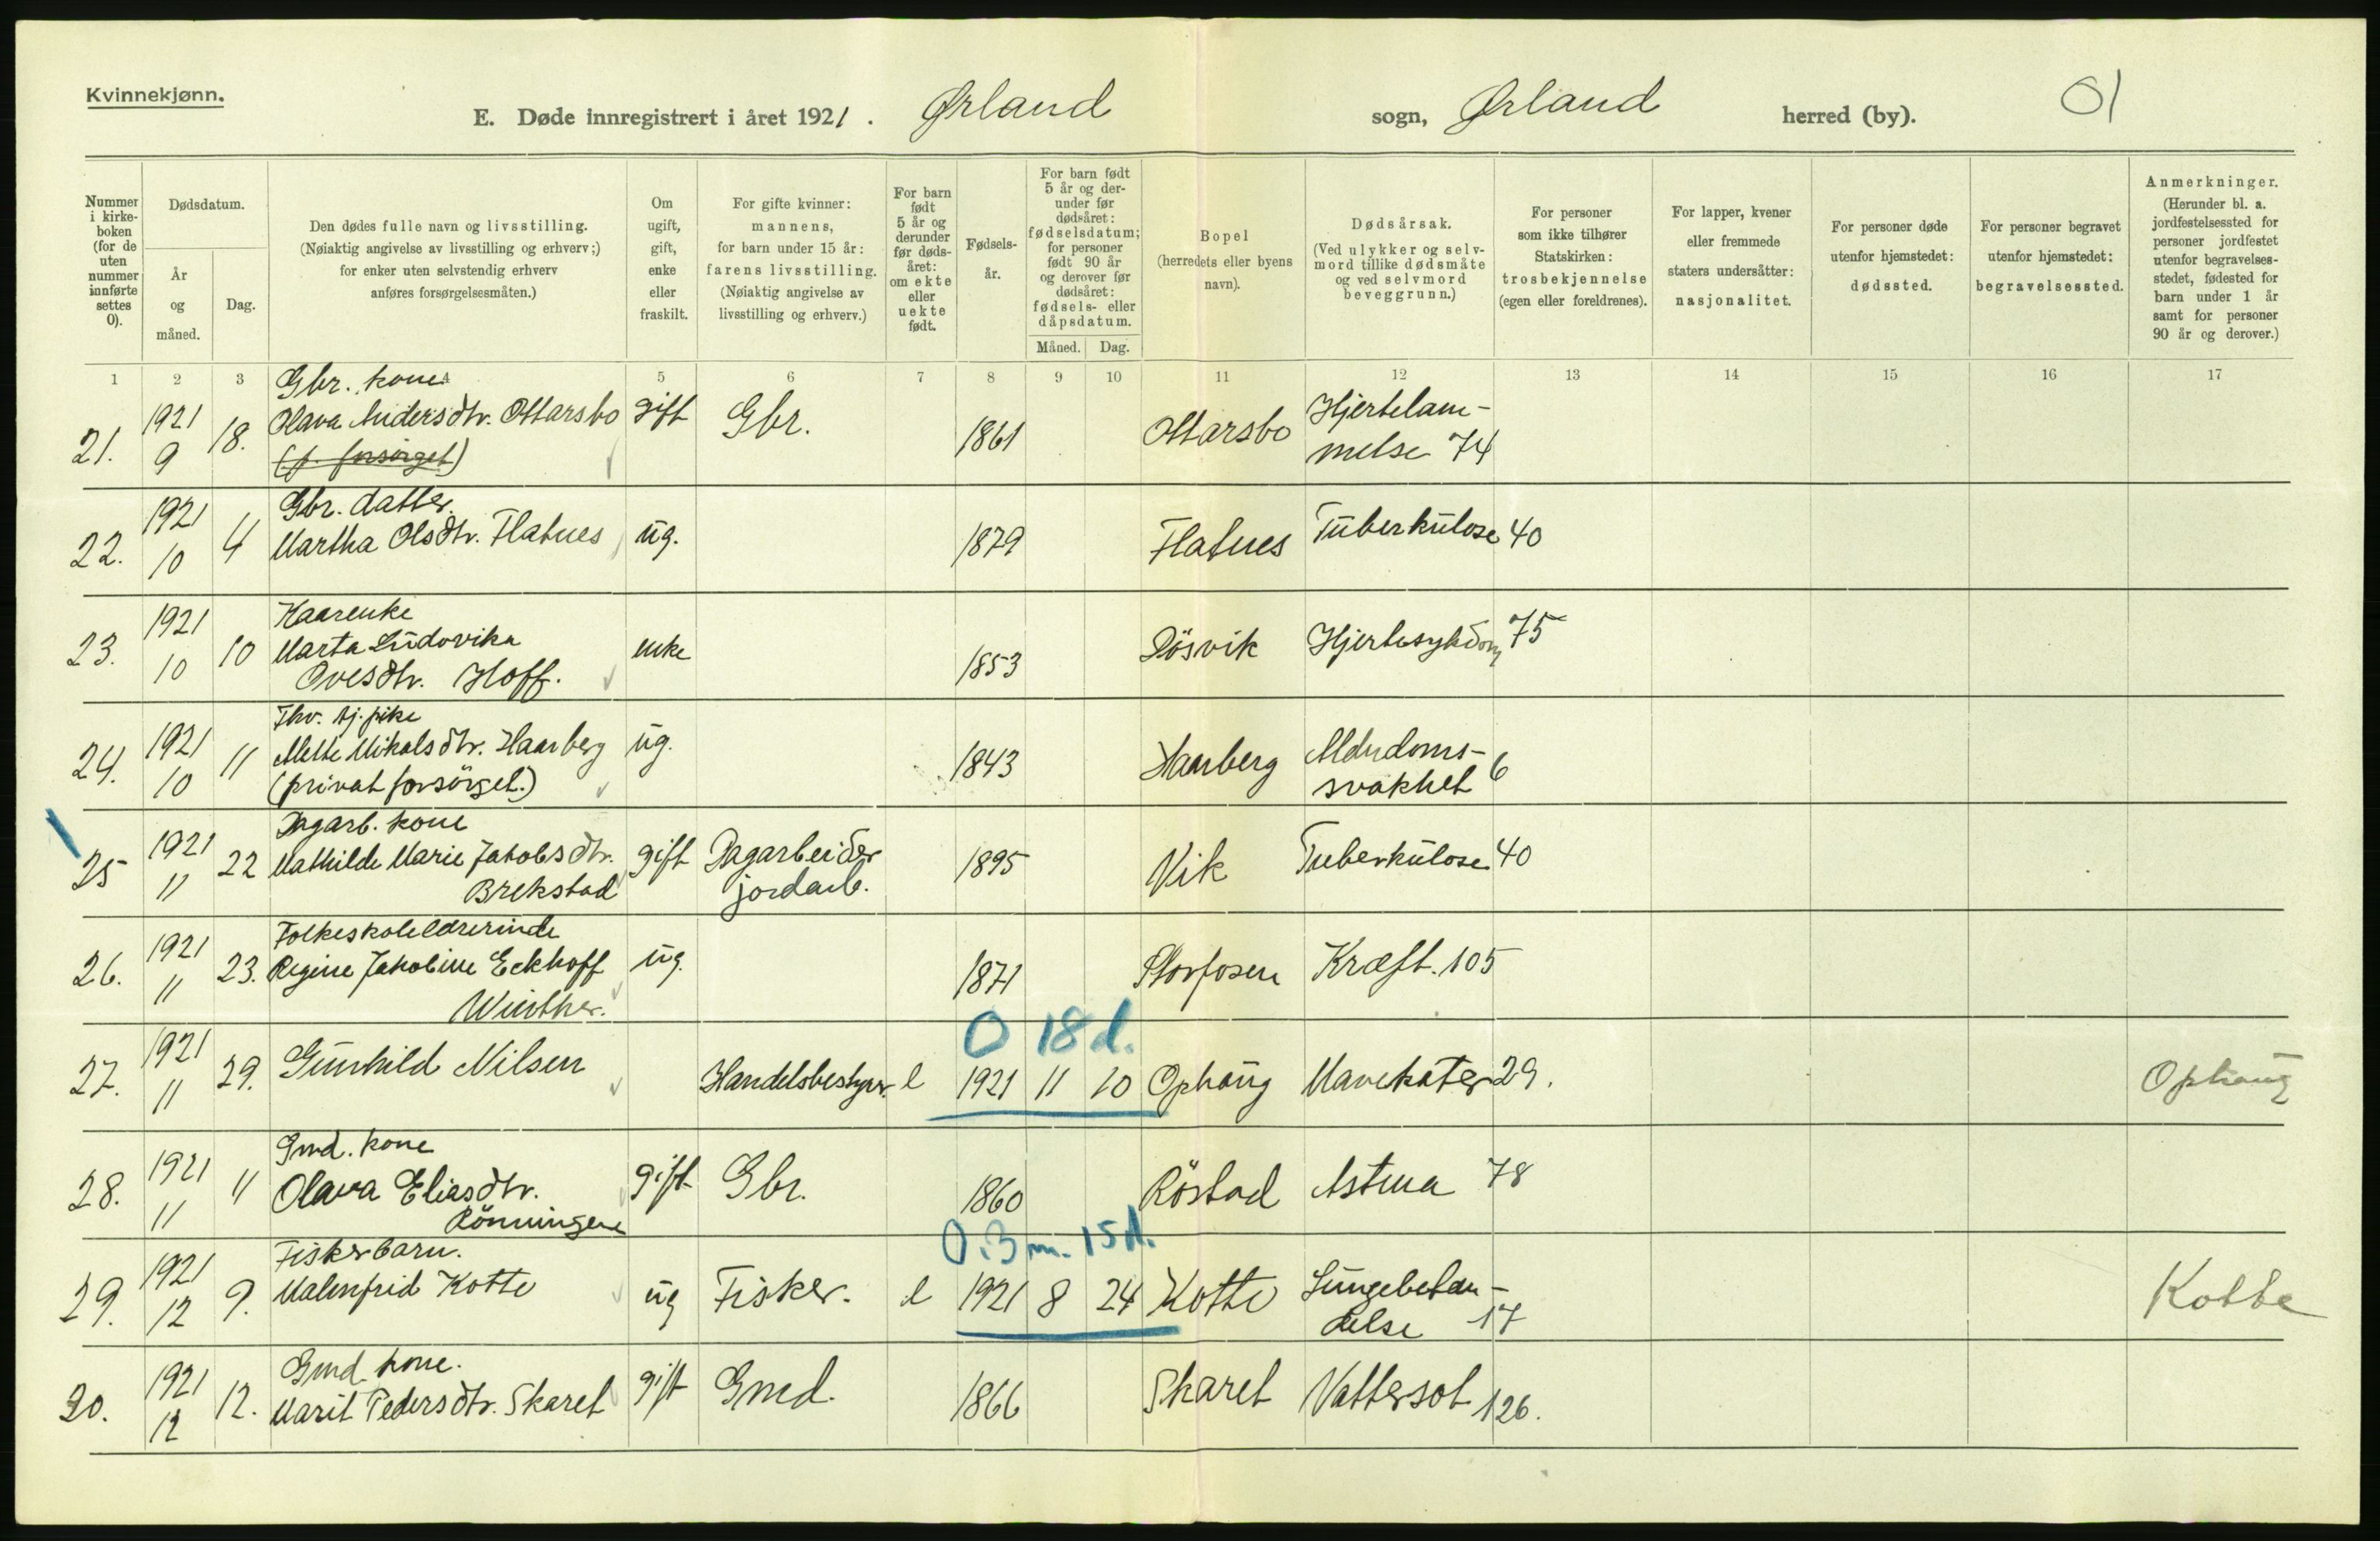 Kvinnekjønn.
E. Døde innregistrert i året 1921. Ørland sogn, Ørland herred (by). 01
Nummer i kirkeboken (for de uten nummer innførte settes 0).
Dødsdatum.
År og måned.
Dag.
Den dødes fulle navn og livsstilling.
(Nøiaktig angivelse av livsstilling og erhverv;)
for enker uten selvstendig erhverv
anføres forsørgelsesmåten.)
Om ugift, gift, enke eller fraskilt.
For gifte kvinner: mannens, for barn under 15 år: farens livsstilling. (Nøiaktig angivelse av livsstilling og erhverv.)
For barn født 5 år og derunder før dødsåret: om ekte eller uekte født.
Fødselsår.
For barn født 5 år og derunder før dødsåret: fødselsdatum; for personer født 90 år og derover før dødsåret: fødsels- eller dåpsdatum.
Måned. Dag.
Bopel (herredets eller byens navn).
Dødsårsak. (Ved ulykker og selvmord tillike dødsmåte og ved selvmord beveggrunn.)
For personer som ikke tilhører Statskirken: trosbekjennelse (egen eller foreldrenes).
For lapper, kvener eller fremmede staters undersåtter: nasjonalitet.
For personer døde utenfor hjemstedet: dødssted.
For personer begravet utenfor hjemstedet: begravelsessted.
Anmerkninger. (Herunder bl. a. jordfestelsessted for personer jordfestet utenfor begravelsesstedet, fødested for barn under 1 år samt for personer 90 år og derover.)
1 2 3 4 5 6 7 8 9 10 11 12 13 14 15 16 17
Gbr. kone
21. 1921 9 18. Olava Andersdtr. Ottarsbo gift Gbr. 1861 Ottarsbo Hjertelam-
(p. forsørget) melse 74
Gbr. datter
22. 1921 10 4 Martha Olsdtr. Flatnes ug. 1879 Flatnes Tuberkulose 40
Kaarenke
23. 1921 10 10 Marta Ludovika enke 1853 Røsvik Hjertesykdom 75
Ovesdtr. Hoff.
Fhv. tj. pike
24. 1921 10 11 Mette Mikalsdtr. Haarberg ug. 1843 Haarberg Alderdoms-
(privat forsörget.) svakhet 6
Dagarb. kone
25 1921 11 22 Mathilde Marie Jakobsdtr. gift Dagarbeider 1895 Vik Tuberkulose 40
Brekstad jordarb.
Folkeskolelærerinde
26. 1921 11 23. Regine Jakobine Eckhoff ug. 1871 Storfosen Kræft. 105
Winther.
0 18 d.
27. 1921 11 29. Gunhild Nilsen Handelsbestyrer. e 1921 11 10 Ophaug Mavekatar 29. Ophaug
Gmd. kone
28. 1921 11 11 Olava Eliasdtr. gift Gbr. 1860 Röstad Astma 78
Rönningen
0. 3 m. 15 d.
Fiskerbarn.
29. 1921 12 9. Malmfrid Kotte ug Fisker. e 1921 8 24 Kotte Lungebetæn-
delse 17 Kotte
Gmd. kone.
30. 1921 12 12. Marit Pedersdtr. Skaret gift Gmd. 1866 Skaret Vattersot 126.